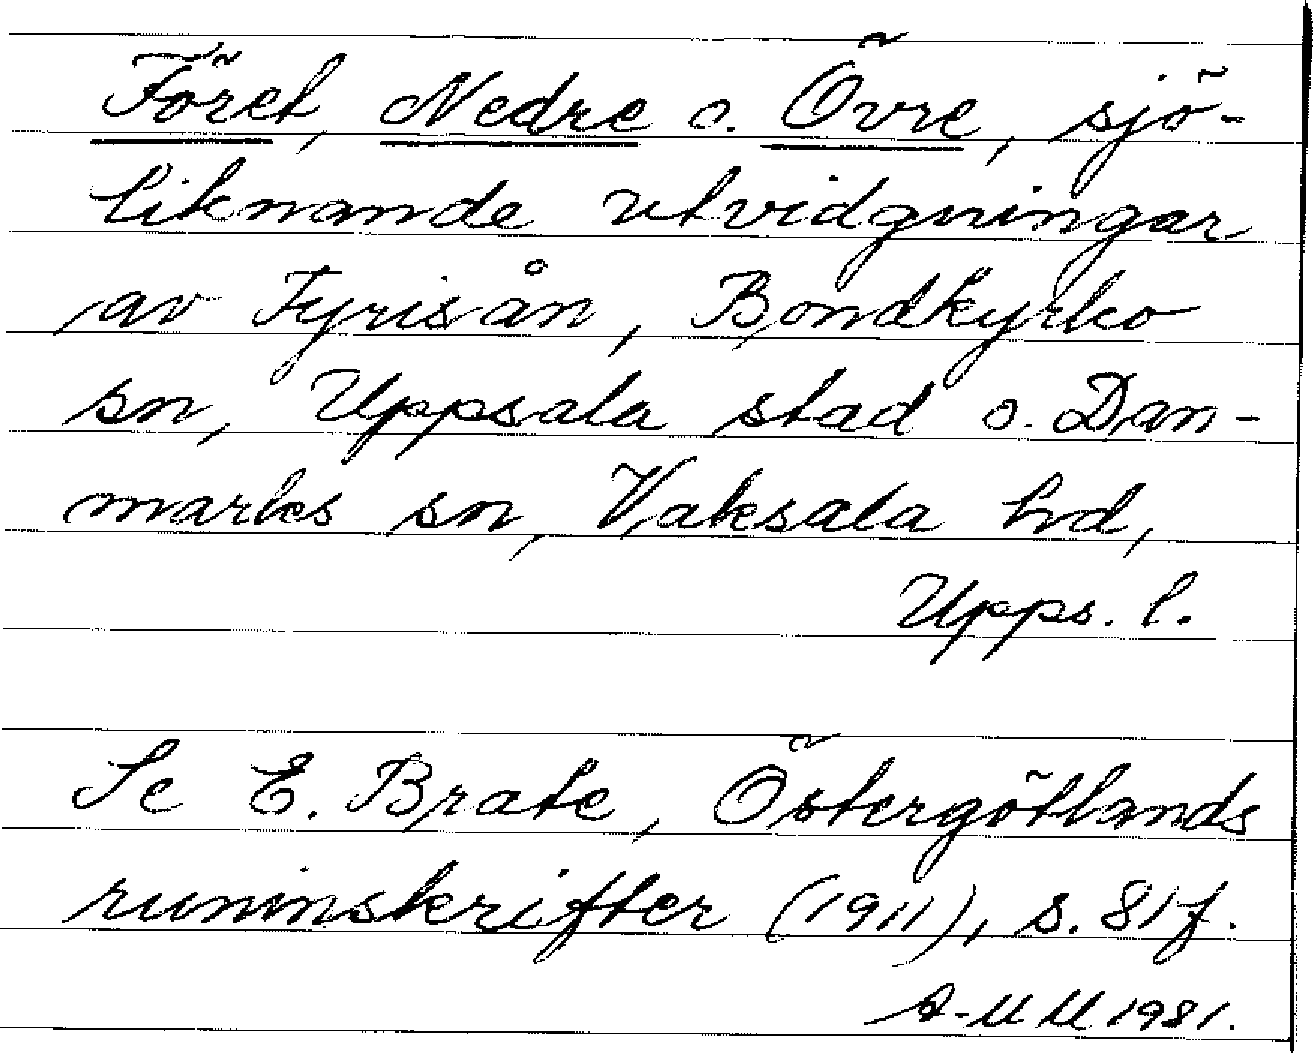 Föret, Nedre o. Övre, sjö-
liknande utvidgningar
av Fyrisån, Bondkyrko
sn, Uppsala stad o. Dan-
marks sn, Vaksala hd,
Upps. l.
Se E. Brate, Östergötlands
runinskrifter (1911), s. 81f.
A-MM 1981.